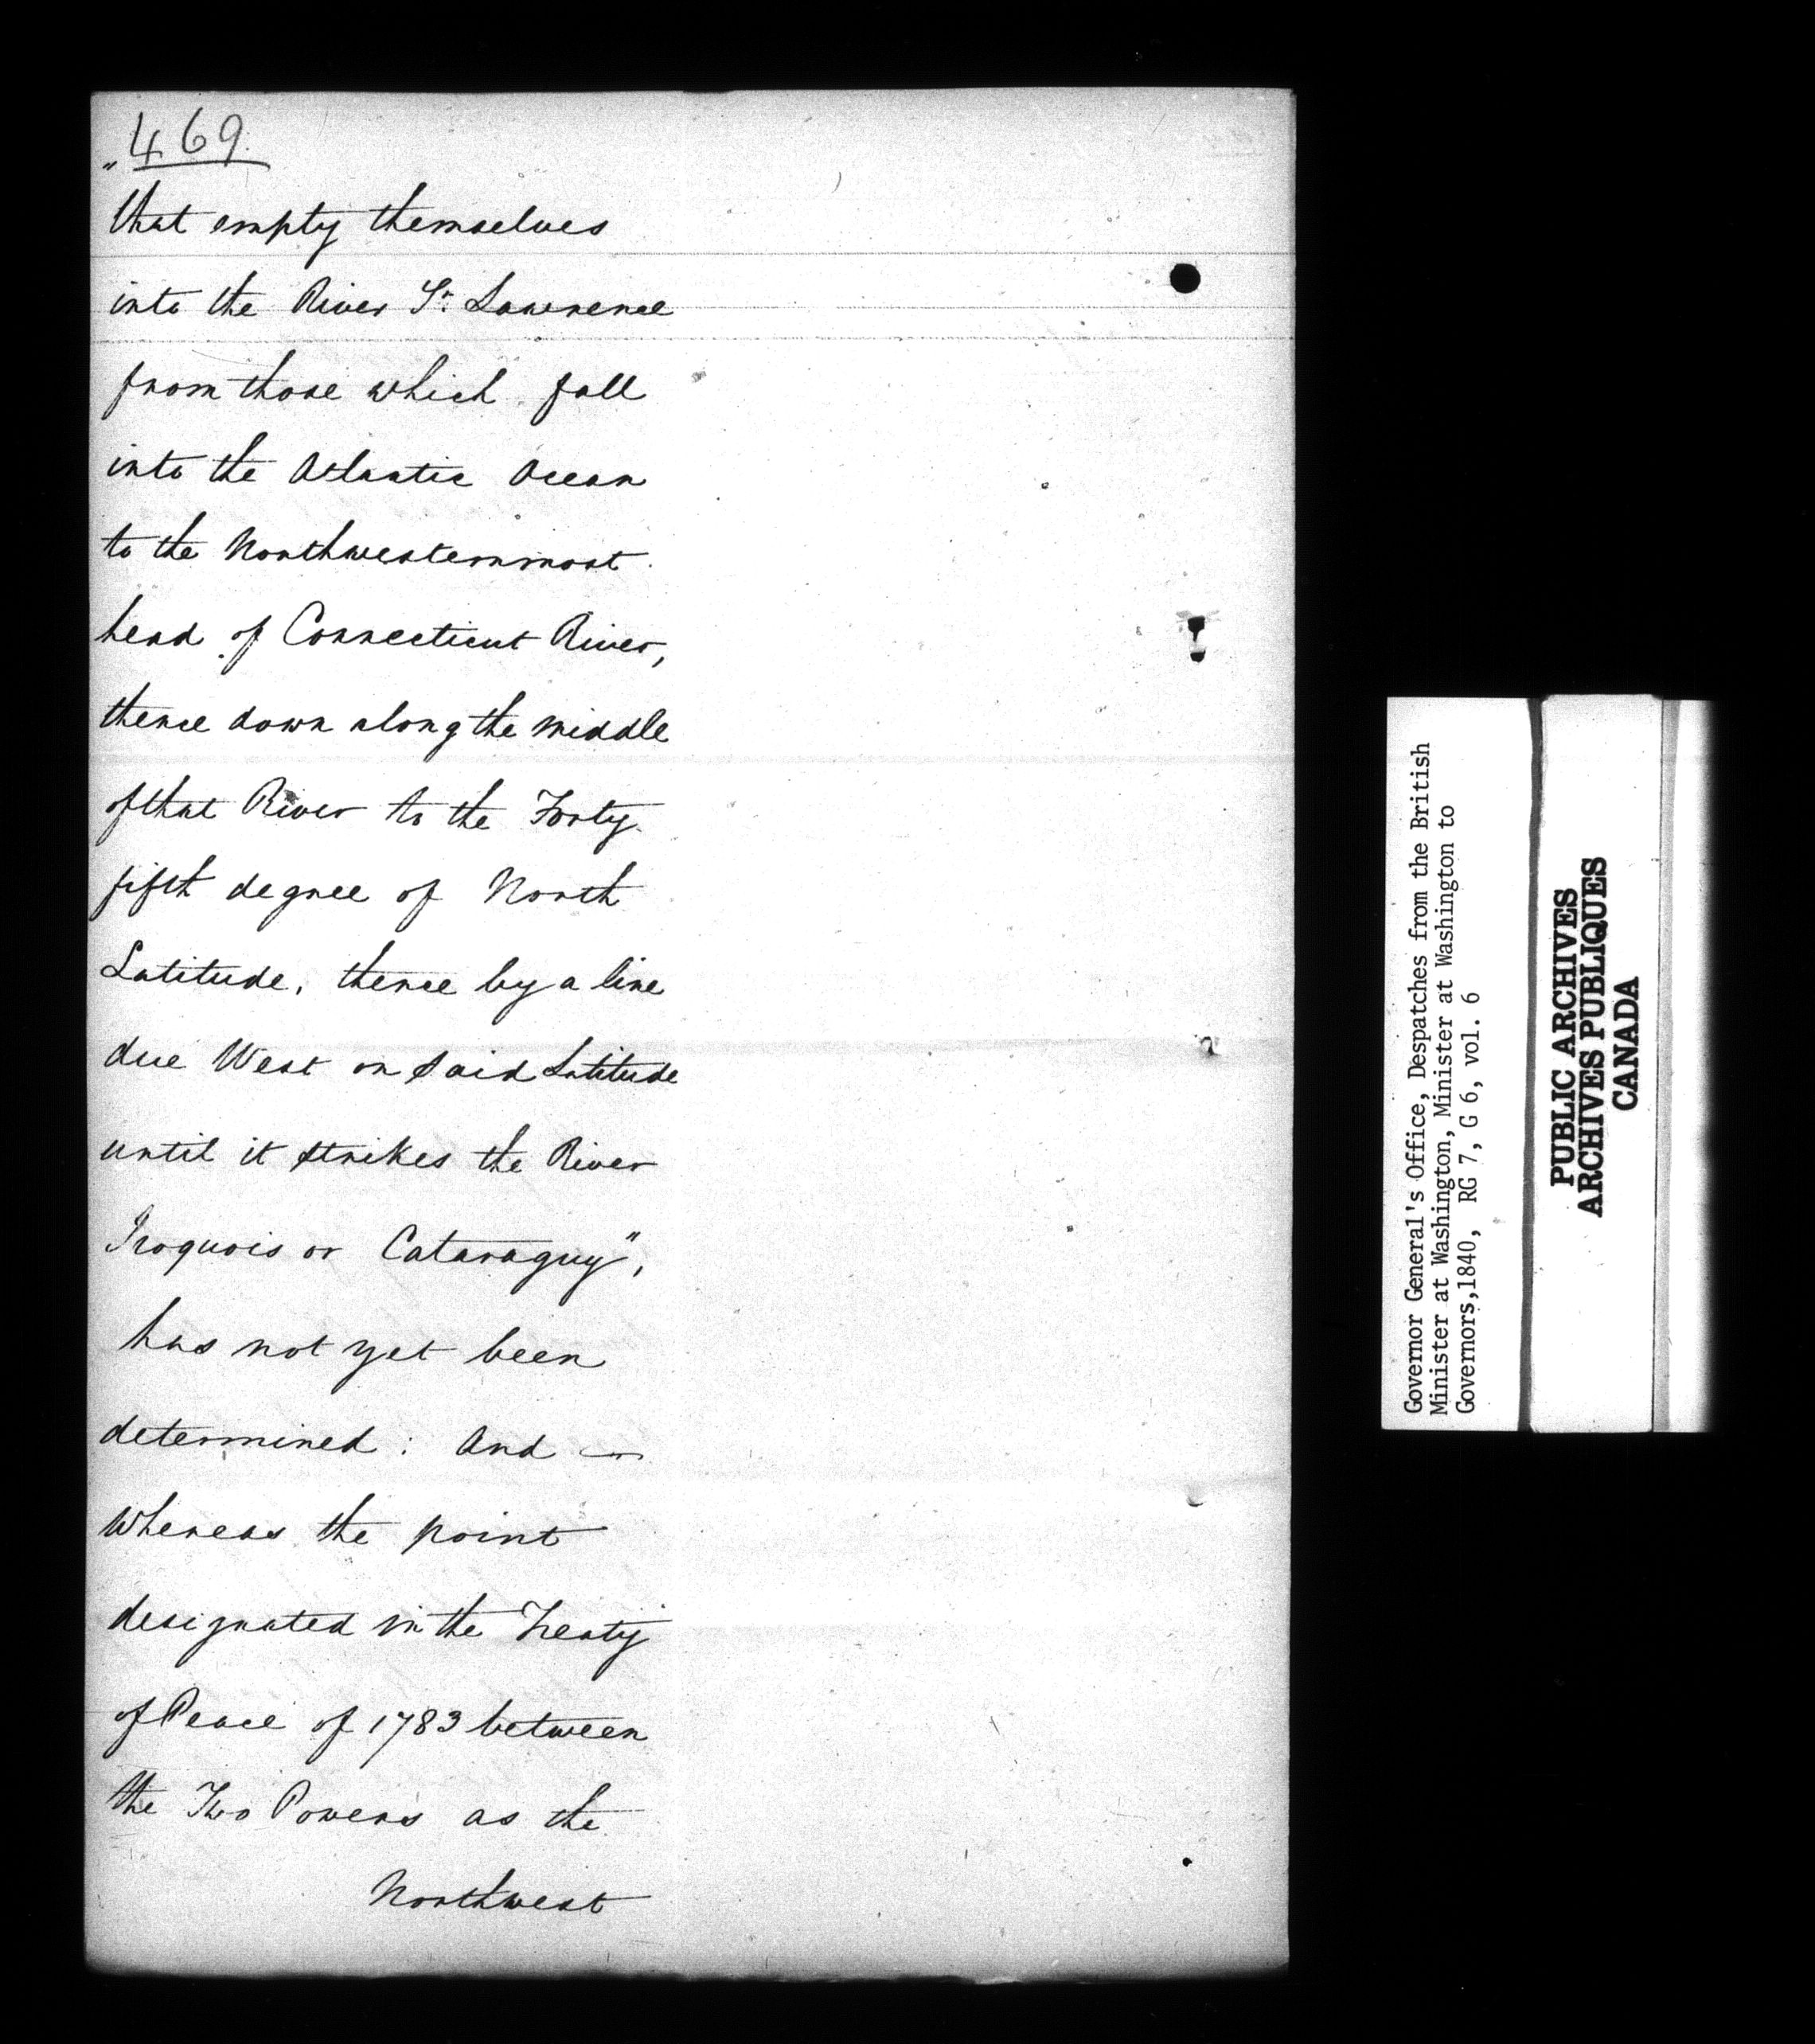 469
"that empty themselves
into the River St. Lawrence
from those which fall
into the Atlantic Ocean
to the Northwesternmost
head of Connecticut River,
thence down along the middle
of that River to the Forty
fifth degree of North
Latitude, thence by a line
due West on said Latitude
until it strikes the River
Iroquois or Cataraguy",
has not yet been
determined: And —
Whereas the point
designated in the Treaty
of Peace of 1783 between
the Two Powers as the
Northwest
Governor General's Office, Despatches from the British
Minister at Washington, Minister at Washington to
Governors,1840, RG 7, G 6, vol. 6
PUBLIC ARCHIVES
ARCHIVES PUBLIQUES
CANADA